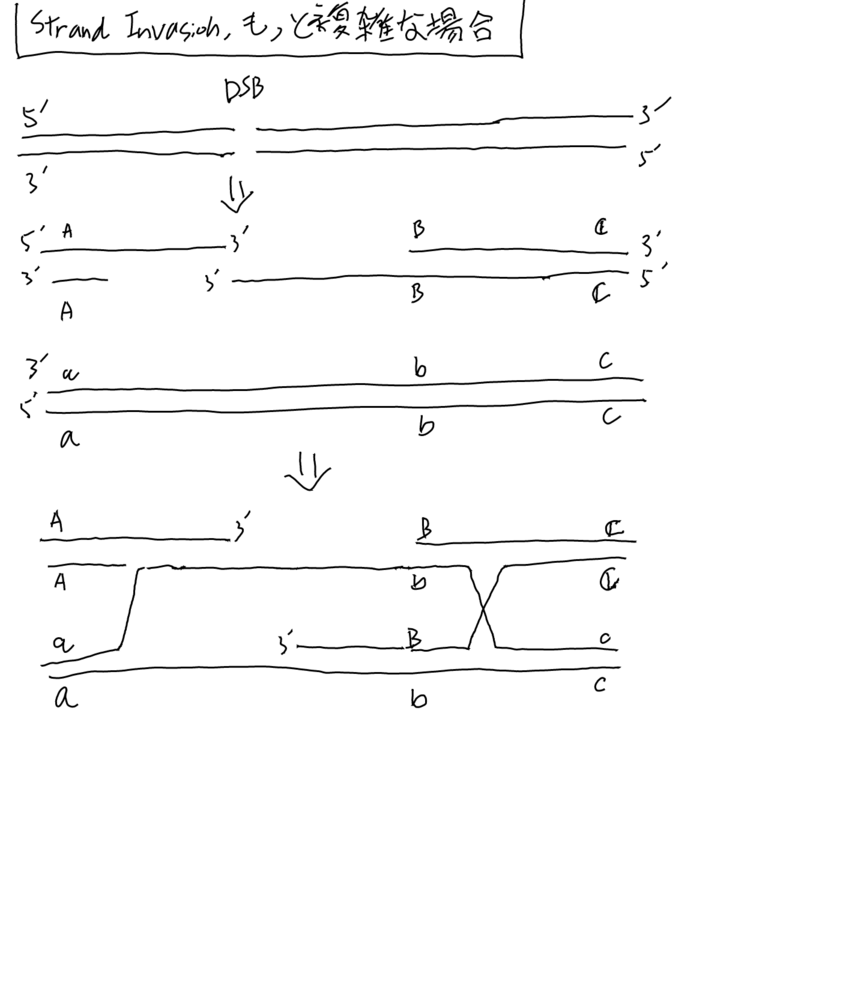 Strand Invasion, もっと複雑な場合
DSB
5′ 3′
3′ 5′
5′ A 3′ B C 3′
3′ 3′ 5′
A B C
3′ a b c
5′
a b c
A 3′ B C
A b C
a 3′ B c
a b c